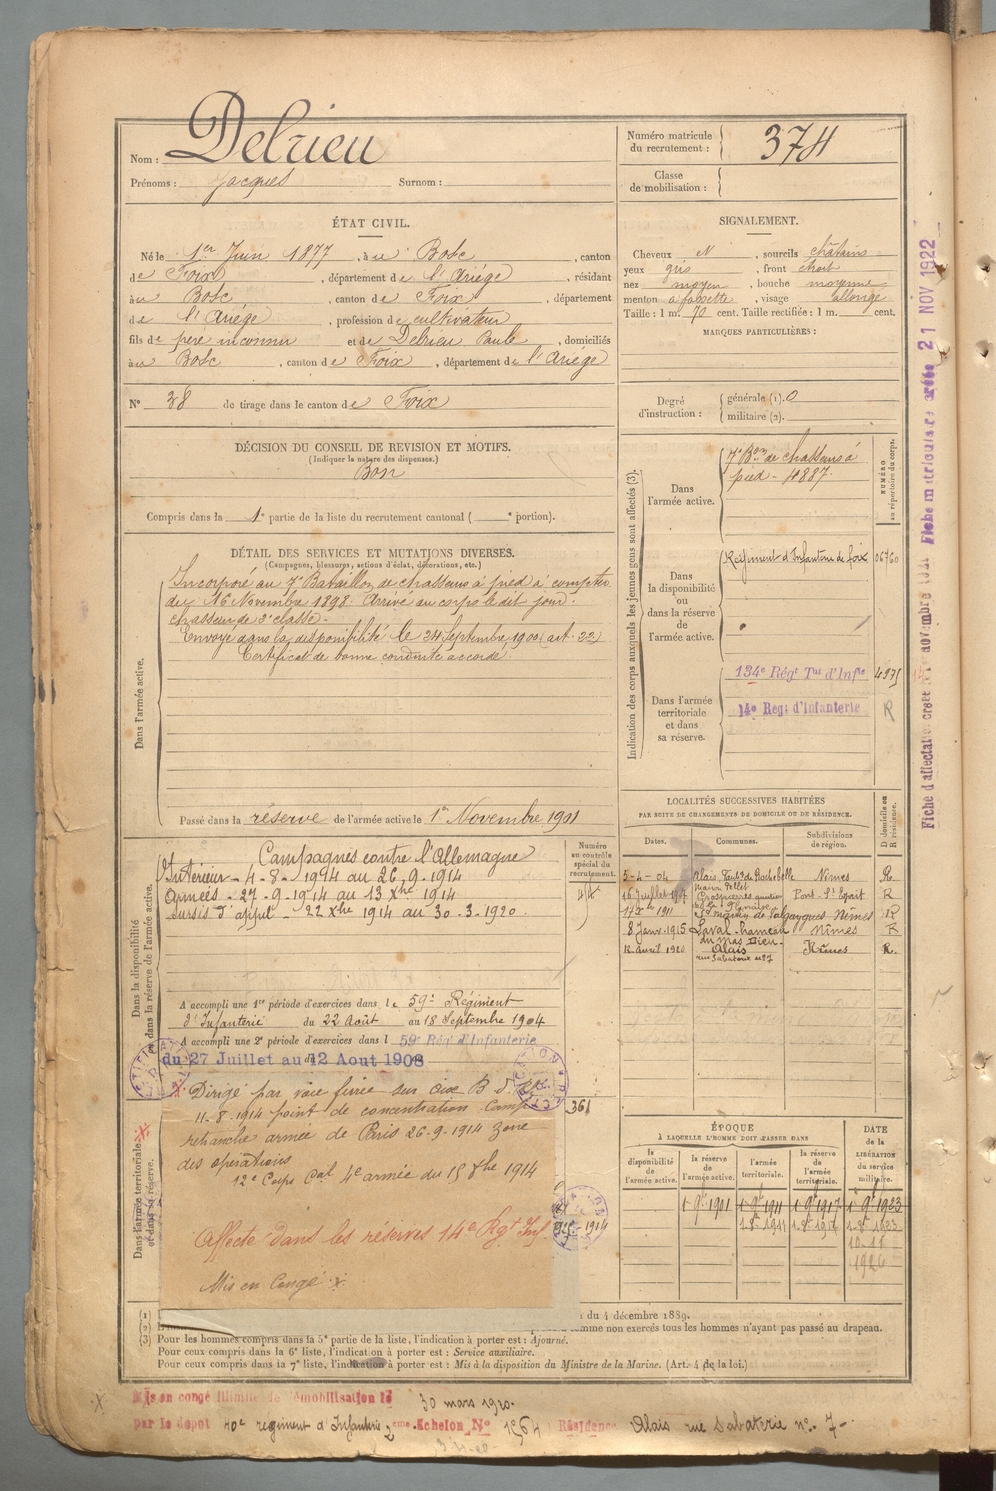 Nom : Delrieu
Prénoms : Jacques Surnom :
Numéro matricule du recrutement : 374
Classe de mobilisation :
ÉTAT CIVIL.
Né le 1er Juin 1877, à u Bosc, canton
de Foix, département de l'Ariège, résidant
à u Bosc, canton de Foix, département
de l'Ariège, profession de cultivateur
fils de père inconnu et de Delrieu Paule, domiciliés
à u Bosc, canton de Foix, département de l'Ariège
N° 38 de tirage dans le canton de Foix
DÉCISION DU CONSEIL DE REVISION ET MOTIFS.
(Indiquer la nature des dispenses.)
Bon
Compris dans la 1e partie de la liste du recrutement cantonal ( e portion).
DÉTAIL DES SERVICES ET MUTATIONS DIVERSES.
(Campagnes, blessures, actions d'éclat, décorations, etc.)
Dans l'armée active.
Incorporé au 7e Bataillon de chasseurs à pied à compter
du 16 Novembre 1898. Arrivé au corps le dit jour.
chasseur de 2e classe.
Envoyé dans la disponibilité le 24 Septembre 1900 (art. 22)
Certificat de bonne conduite accordé.
Passé dans la réserve de l'armée active le 1er Novembre 1901
Dans la disponibilité ou dans la réserve de l'armée active.
Numéro au contrôle spécial du recrutement.
Campagnes contre l'Allemagne
Intérieur - 4-8-1914 au 26.9-1914
Armées - 27-9-1914 au 13 Xbre 1914
Sursis d'appel - 22 Xbre 1914 au 30-3-1920.
A accompli une 1re période d'exercices dans le 59e Régiment
d'Infanterie du 22 Août au 18 Septembre 1904
A accompli une 2e période d'exercices dans l 59e Rég' d'Infanterie
du 27 Juillet au 12 Aout 1908
Dans l'armée territoriale et dans sa réserve.
361
Dirigé par voie ferrée sur
11-8-1914 point de concentration Camp
retranché armée de Paris 26-9-1914 zone
des opérations
12e Corps Cat 4e armée du 15 Xbre 1914
Affecté dans les réserves 14e Rgt Inf.
Mis en Congé x
1914
SIGNALEMENT.
Cheveux N, sourcils châtains
yeux gris, front étroit
nez moyen, bouche moyenne
menton à fossette, visage allongé
Taille : 1 m. 70 cent. Taille rectifiée : 1 m. cent.
MARQUES PARTICULIÈRES :
Degré d'instruction : générale (1). 0
militaire (2).
Indication des corps auxquels les jeunes gens sont affectés (3).
NUMÉRO au répertoire du corps.
Dans l'armée active.
7e Bon de chasseurs à
pied - 4887.
Dans la disponibilité ou dans la réserve de l'armée active.
Régiment d'Infanterie de foix 06760
Dans l'armée territoriale et dans sa réserve.
134e Régt Tal d'Infie 4975
14e Regt d'Infanterie R
LOCALITÉS SUCCESSIVES HABITÉES
PAR SUITE DE CHANGEMENTS DE DOMICILE OU DE RÉSIDENCE.
Dates. Communes. Subdivisions de région. D Domicile ou R résidence.
5-4-04 Alais, Faubg de Rochebelle Nîmes R.
Pont-St-Esprit R
St Martin de Valgayques, Nîmes R
8 Janv. 1915 Laval - hameau Nîmes R
du Mas Dieu.
12 avril 1920 Alais Nîmes R.
rue Sabaterie n° 7
ÉPOQUE
A LAQUELLE L'HOMME DOIT PASSER DANS
la disponibilité de l'armée active. la réserve de l'armée active. l'armée territoriale. la réserve de l'armée territoriale.
DATE de la LIBÉRATION du service militaire.
1 9bre 1901 1 9bre 1911 1 9bre 1917 1 9bre 1923
10-11
1926
du 4 décembre 1889.
comme non exercés tous les hommes n'ayant pas passé au drapeau.
(3) Pour les hommes compris dans la 5e partie de la liste, l'indication à porter est : Ajourné.
Pour ceux compris dans la 6e liste, l'indication à porter est : Service auxiliaire.
Pour ceux compris dans la 7e liste, l'indication à porter est : Mis à la disposition du Ministre de la Marine. (Art. 4 de la loi.)
Mis en congé illimité de démobilisation le 30 mars 1920.
par le dépôt 40e régiment d'Infanterie 2eme Echelon N° 1564 Résidence Alais rue Sabaterie n° 7
Fiche matriculaire créée 21 NOV 1922